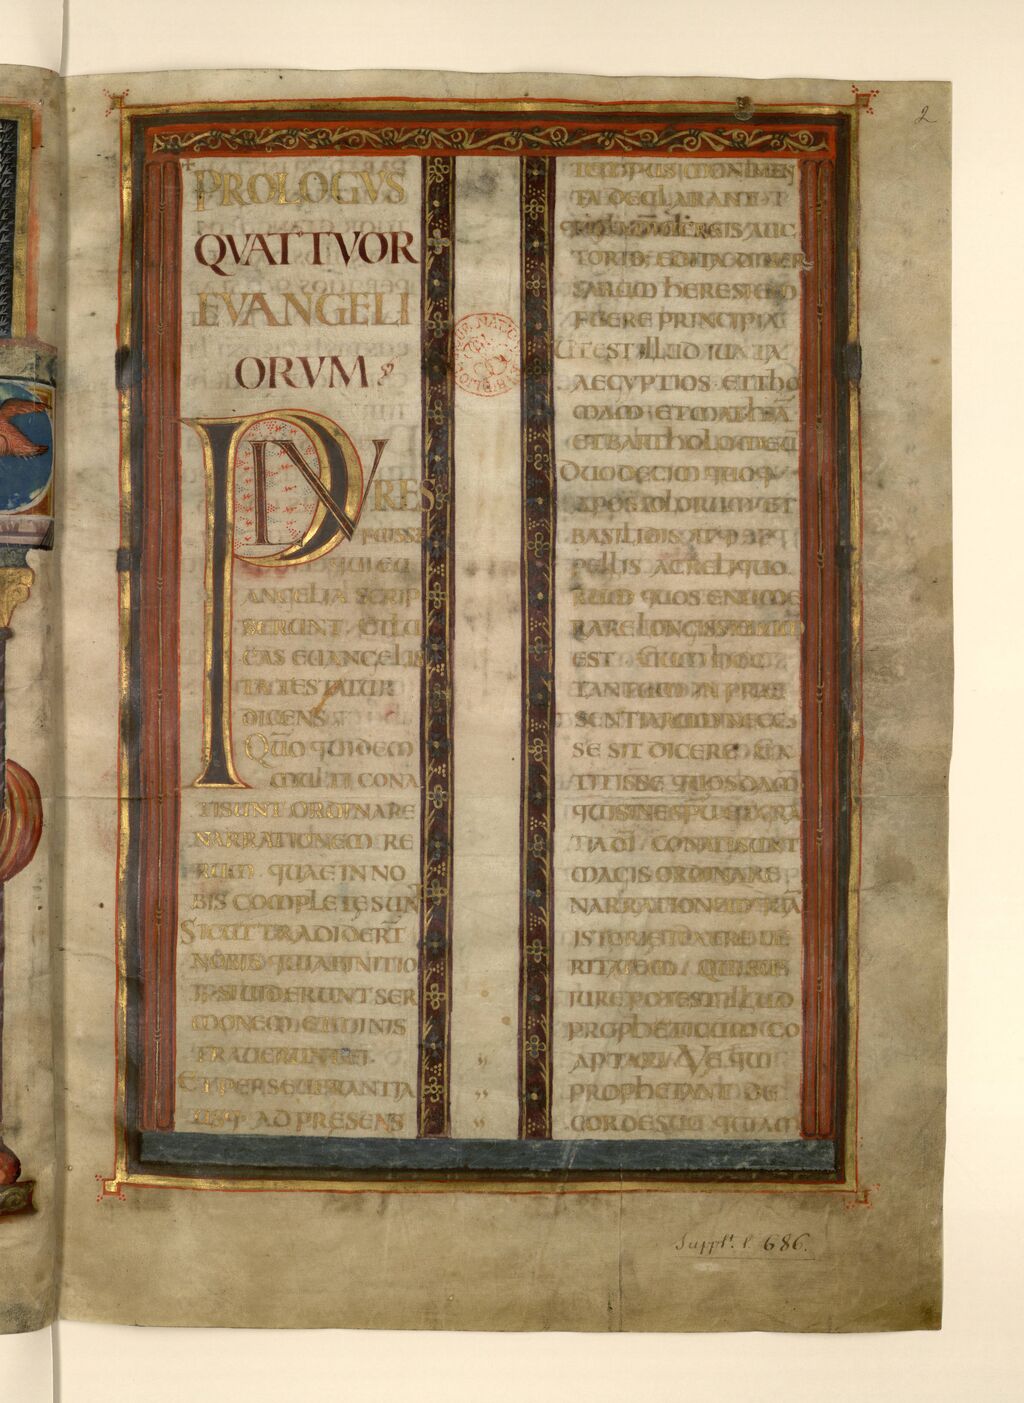 2
PROLOGVS
QVATTVOR
EVANGELI
ORVM
PLV
RES
FUISSE
QUI EU
ANGELIA SCRIP
SERUNT, ET LU
CAS EUANGELIS
TA TESTATUR
DICENS
Quō quidem
MULTI CONA
TI SUNT ORDINARE
NARRATIONEM RE
RUM QUAE IN NO
BIS COMPLETE SUNT
SICUT TRADIDERT̄
NOBIS QUI AB INITIO
IPSI UIDERUNT SER
MONEM, ET MINIS
TRAUERUNT EI.
ET PERSEUERANTIA
USQ· AD PRESENS
TEMPUS MONIMEN
TA DECLARANT
DIUERSIS AUC
TORIB; EDITA DIUER
SARUM HERESEUM
FUERE PRINCIPIA
UT EST ILLUD IUXTA
AEGYPTIOS ET THO
MAM, ET MATHEĀ
ET BARTHOLOMEŪ
DUODECIM QUOQ·
APOSTOLORUM UT EST
BASILIDIS ATQ· AP
PELLIS AC RELIQUO
RUM QUOS ENUME
RARE LONGISSIMUM
EST CUM HOC
TANTUM IN PRAE
SENTIARUM NECES
SE SIT DICERE EX
TITISSE QUOSDAM
QUI SINE SPŪ ET GRA
TIA DĪ CONATI SUNT
MAGIS ORDINARE
NARRATIONEM QUĀ
ISTORIE TEXERE UE
RITATEM, QUIBUS
IURE POTEST ILLUD
PROPHETICUM CO
APTARI, VE QUI
PROPHETANT DE
CORDE SUO QUI AM
Supplt. l. 686.